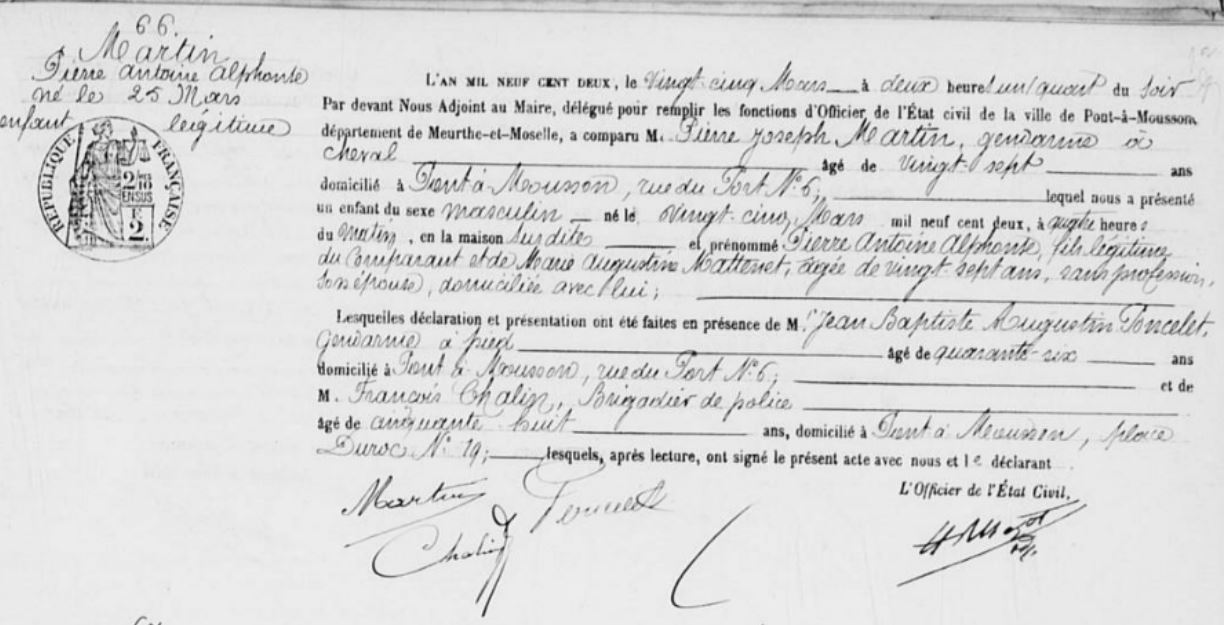 66.
Martin
Pierre Antoine Alphonse
né le 25 Mars
enfant légitime
RÉPUBLIQUE FRANÇAISE
2/10 EN SUS
E
2.
L'AN MIL NEUF CENT DEUX, le Vingt cinq Mars à deux heures un quart du Soir
Par devant Nous Adjoint au Maire, délégué pour remplir les fonctions d'Officier de l'État civil de la ville de Pont-à-Mousson,
département de Meurthe-et-Moselle, a comparu M. Pierre Joseph Martin, gendarme à
Cheval âgé de Vingt sept ans
domicilié à Pont à Mousson, rue du Port N° 6, lequel nous a présenté
un enfant du sexe Masculin né le Vingt cinq Mars mil neuf cent deux, à quatre heures
du Matin, en la maison Susdite et prénommé Pierre Antoine Alphonse, fils légitime
du Comparant et de Marie Augustine Mattenet, âgée de vingt sept ans, sans profession,
son épouse, domiciliée avec lui;
Lesquelles déclaration et présentation ont été faites en présence de M. Jean Baptiste Augustin Poncelet,
Gendarme à pied âgé de quarante six ans
domicilié à Pont à Mousson, rue du Port N° 6; et de
M. François Chalin, Brigadier de police
âgé de cinquante huit ans, domicilié à Pont à Mousson, place
Duroc N° 19; lesquels, après lecture, ont signé le présent acte avec nous et le déclarant
L'Officier de l'État Civil,
Martin
Chalin